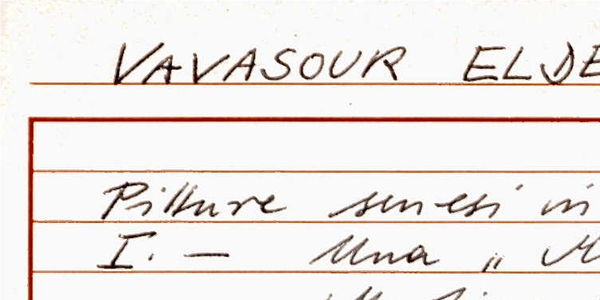 VAVASOUR ELDE
Pitture senesi in
I. — Una „ M